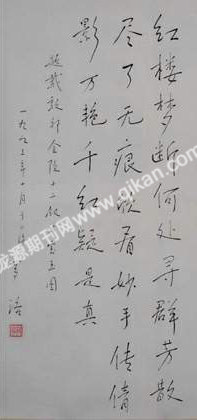 红楼梦断何处寻群芳散
尽了无痕妙手传倩
影万艳千红疑是真
题戴敦邦金陵十二钗图
一九九年十月十日
龙源期刊网 www.qikan.com.cn